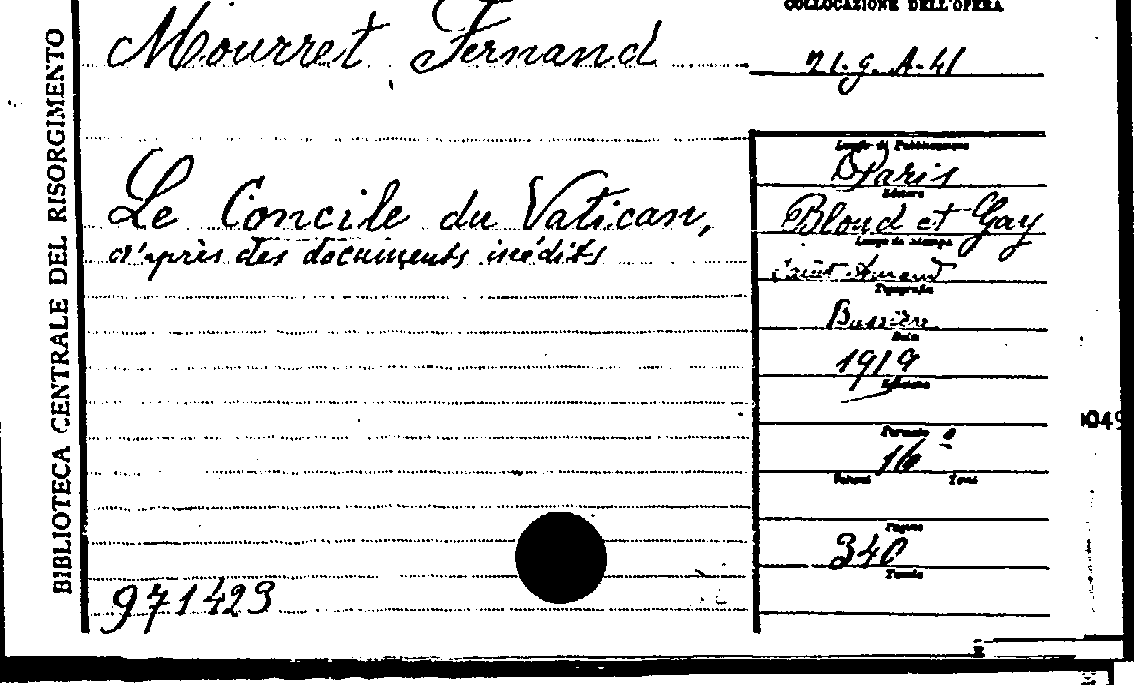 BIBLIOTECA CENTRALE DEL RISORGIMENTO
COLLOCAZIONE DELL'OPERA
Mourret Fernand
21.g. A-41
Le Concile du Vatican,
d'après des documents inédits
971423
Luogo di Pubblicazione
Paris
Editore
Bloud et Gay
Luogo di stampa
Saint-Amand
Tipografia
Bussière
Data
1919
Edizione
Formato
16°
Volumi Tomi
Pagine
340
Tavole
1049